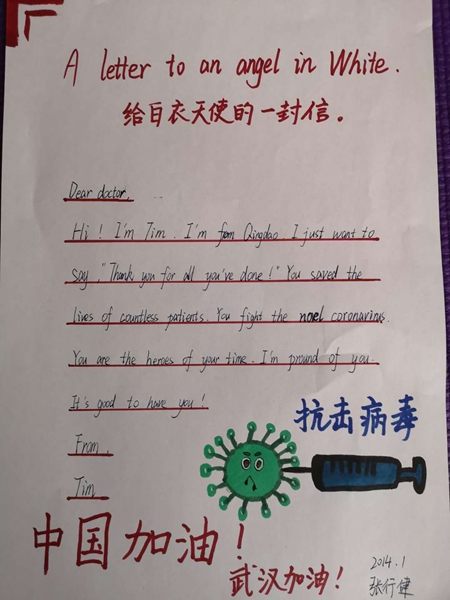 A letter to an angel in White.
给白衣天使的一封信。
Dear doctor,
Hi! I'm Tim. I'm from Qingdao I just want to
say, "Thank you for all you've done!" You saved the
lives of countless patients. You fight the novel coronavirus.
You are the heroes of your time. I'm pround of you.
It's good to have you!
From,
Tim
抗击病毒
中国加油!
武汉加油!
2014.1
张行健